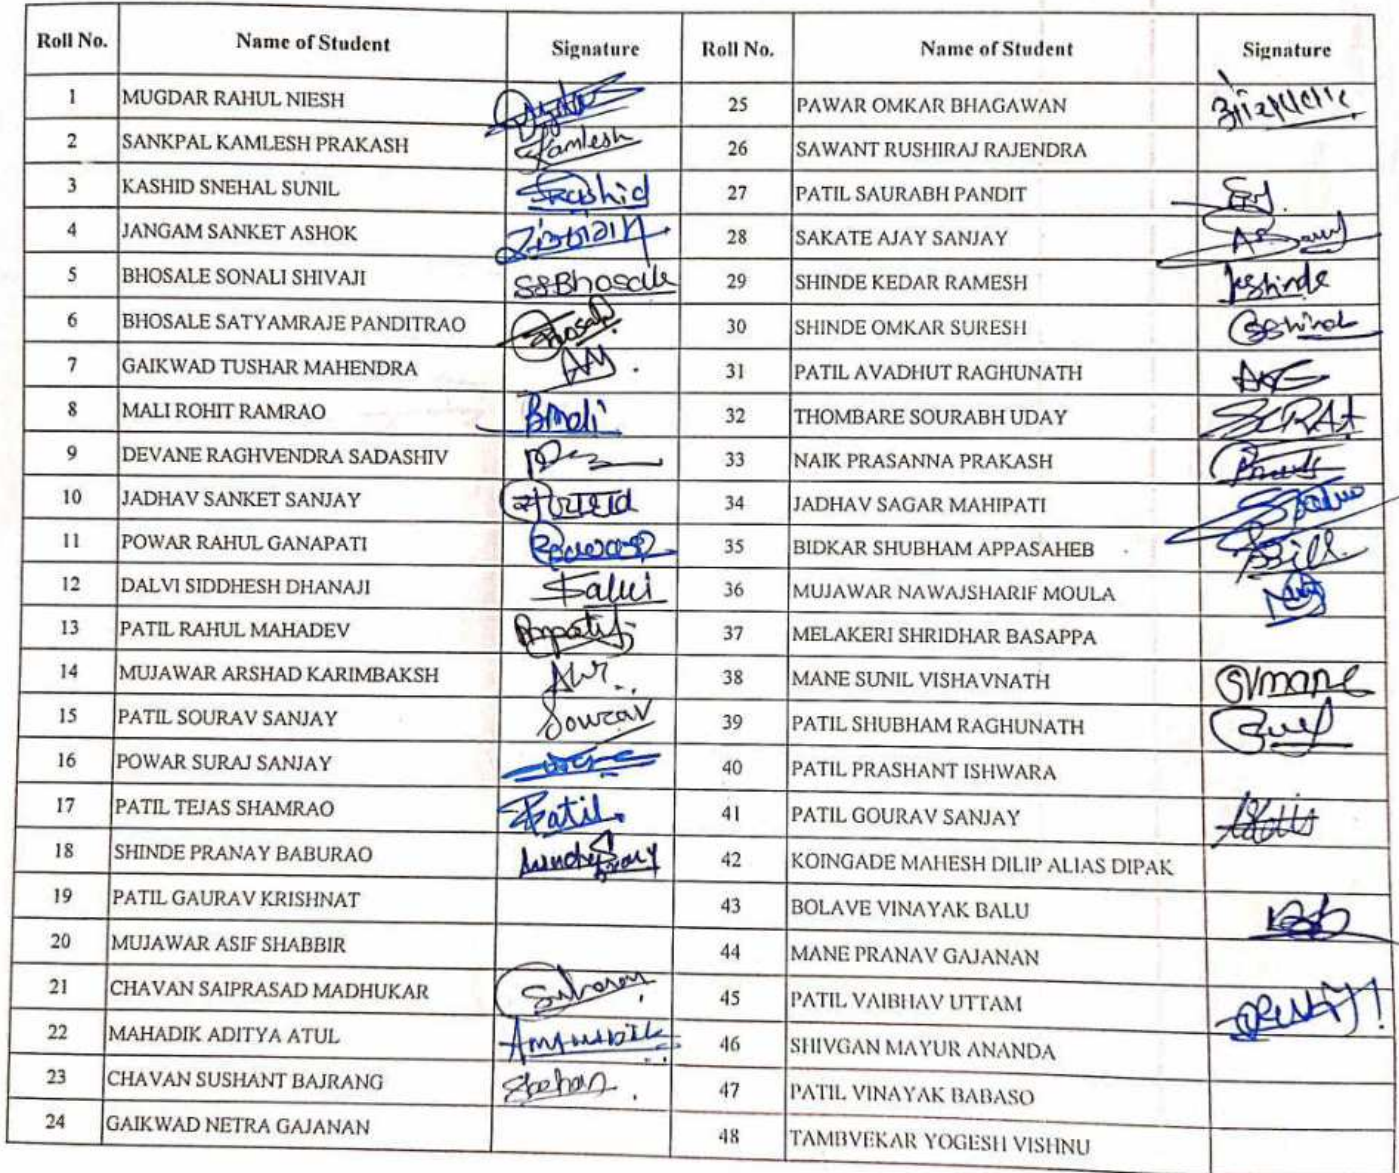 Roll No. Name of Student Signature Roll No. Name of Student Signature
1 MUGDAR RAHUL NIESH 25 PAWAR OMKAR BHAGAWAN
2 SANKPAL KAMLESH PRAKASH Kamlesh 26 SAWANT RUSHIRAJ RAJENDRA
3 KASHID SNEHAL SUNIL SKashid 27 PATIL SAURABH PANDIT
4 JANGAM SANKET ASHOK 28 SAKATE AJAY SANJAY
5 BHOSALE SONALI SHIVAJI SSBhosale 29 SHINDE KEDAR RAMESH
6 BHOSALE SATYAMRAJE PANDITRAO Bhosale 30 SHINDE OMKAR SURESH
7 GAIKWAD TUSHAR MAHENDRA 31 PATIL AVADHUT RAGHUNATH
8 MALI ROHIT RAMRAO 32 THOMBARE SOURABH UDAY
9 DEVANE RAGHVENDRA SADASHIV 33 NAIK PRASANNA PRAKASH
10 JADHAV SANKET SANJAY 34 JADHAV SAGAR MAHIPATI
11 POWAR RAHUL GANAPATI 35 BIDKAR SHUBHAM APPASAHEB
12 DALVI SIDDHESH DHANAJI Dalvi 36 MUJAWAR NAWAJSHARIF MOULA
13 PATIL RAHUL MAHADEV 37 MELAKERI SHRIDHAR BASAPPA
14 MUJAWAR ARSHAD KARIMBAKSH 38 MANE SUNIL VISHAVNATH SVmane
15 PATIL SOURAV SANJAY Sourav 39 PATIL SHUBHAM RAGHUNATH
16 POWAR SURAJ SANJAY 40 PATIL PRASHANT ISHWARA
17 PATIL TEJAS SHAMRAO Patil 41 PATIL GOURAV SANJAY
18 SHINDE PRANAY BABURAO 42 KOINGADE MAHESH DILIP ALIAS DIPAK
19 PATIL GAURAV KRISHNAT 43 BOLAVE VINAYAK BALU
20 MUJAWAR ASIF SHABBIR 44 MANE PRANAV GAJANAN
21 CHAVAN SAIPRASAD MADHUKAR 45 PATIL VAIBHAV UTTAM
22 MAHADIK ADITYA ATUL 46 SHIVGAN MAYUR ANANDA
23 CHAVAN SUSHANT BAJRANG 47 PATIL VINAYAK BABASO
24 GAIKWAD NETRA GAJANAN 48 TAMBVEKAR YOGESH VISHNU